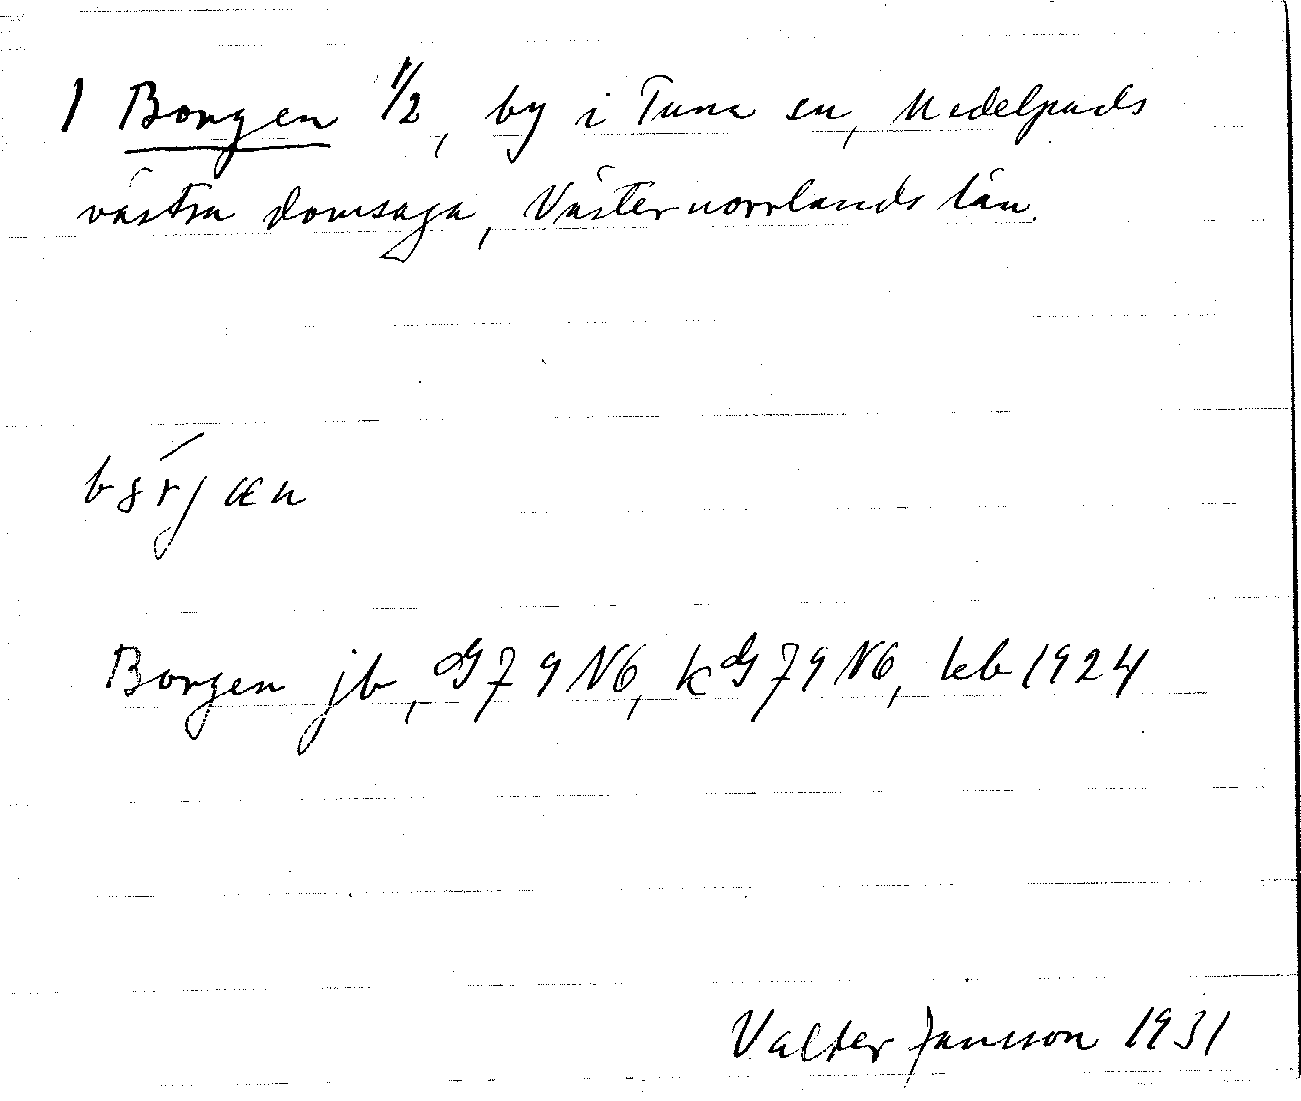 1 Borgen 1/2, by i Tuna sn, Medelpads
västra domsaga, Västernorrlands län.
Borgen jb, GJ 9 N6, kGJ 9 N6, kb 1924
Valter Jansson 1931